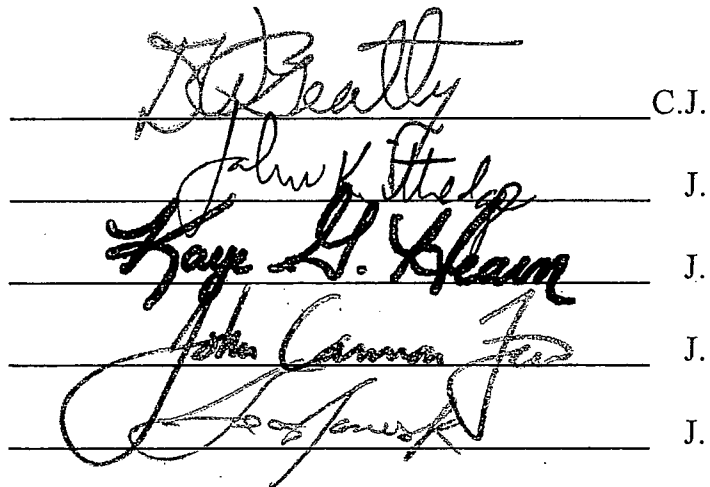 D W Beatty C.J.
John K. Kittredge J.
Kaye G. Hearn J.
John Cannon Few J.
J.